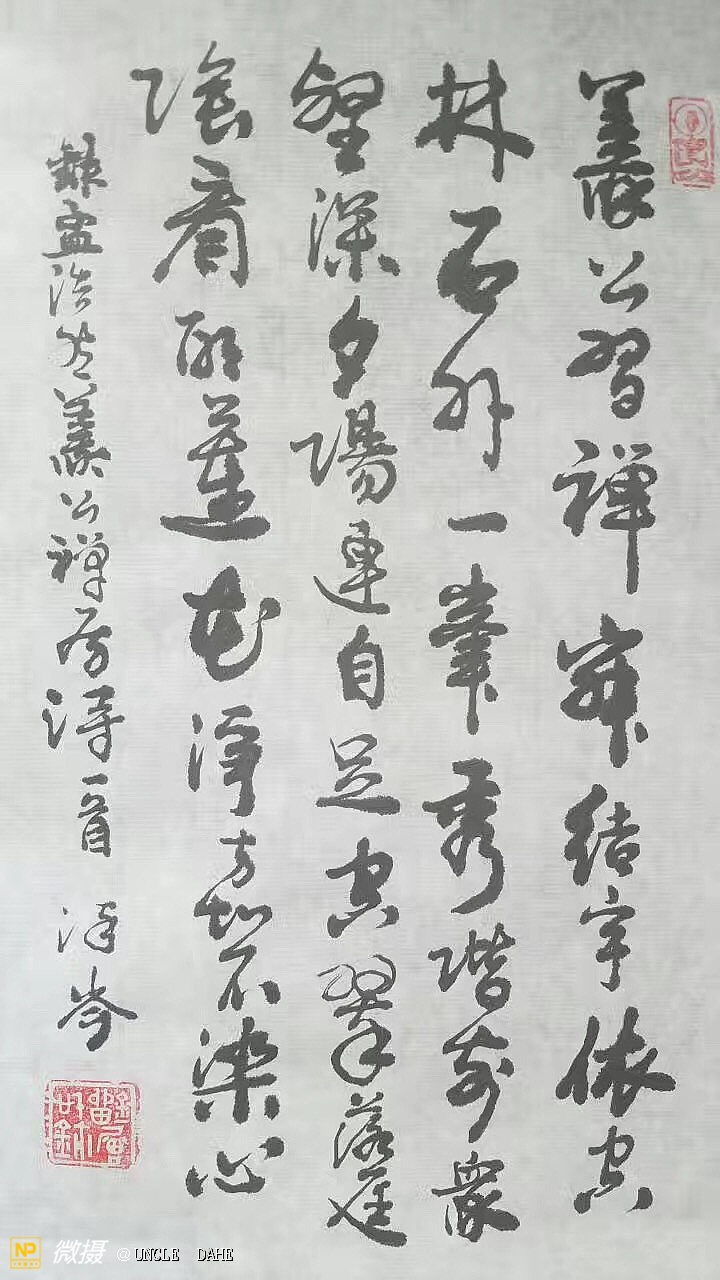 義公習禪寂結宇依空
林石外一峯秀階前眾
壑深夕陽連自足空翠落庭
陰看取蓮花淨方知不染心
錄孟浩然義公禪房詩一首 岑
NP 微摄 @UNCLE DAHE